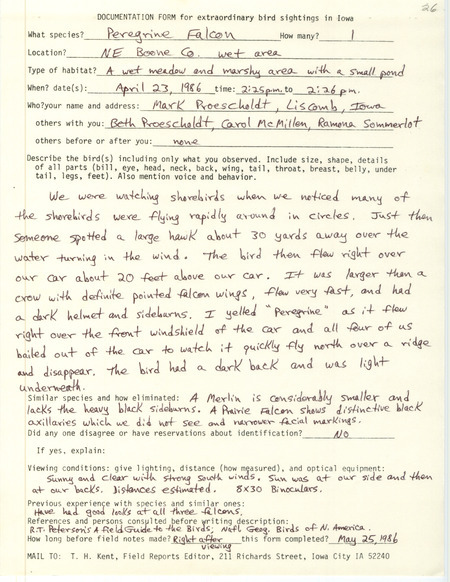 26
DOCUMENTATION FORM for extraordinary bird sightings in Iowa
What species? Peregrine Falcon How many? 1
Location? NE Boone Co. wet area
Type of habitat? A wet meadow and marshy area with a small pond
When? date(s): April 23, 1986 time: 2:25pm to 2:26pm.
Who?your name and address: Mark Proescholdt, Liscomb, Iowa
others with you: Beth Proescholdt, Carol McMillen, Ramona Sommerlot
others before or after you: none
Describe the bird(s) including only what you observed. Include size, shape, details
of all parts (bill, eye, head, neck, back, wing, tail, throat, breast, belly, under
tail, legs, feet). Also mention voice and behavior.
We were watching shorebirds when we noticed many of
the shorebirds were flying rapidly around in circles. Just then
someone spotted a large hawk about 30 yards away over the
water turning in the wind. The bird then flew right over
our car about 20 feet above our car. It was larger than a
crow with definite pointed falcon wings, flew very fast, and had
a dark helmet and sideburns. I yelled "Peregrine" as it flew
right over the front windshield of the car and all four of us
bailed out of the car to watch it quickly fly north over a ridge
and disappear. The bird had a dark back and was light
underneath.
Similar species and how eliminated: A Merlin is considerably smaller and
lacks the heavy black sideburns. A Prairie Falcon shows distinctive black
axillaries which we did not see and narrower facial markings.
Did any one disagree or have reservations about identification? NO
If yes, explain:
Viewing conditions: give lighting, distance (how measured), and optical equipment:
Sunny and clear with strong south winds. Sun was at our side and then
at our backs. Distances estimated. 8x30 Binoculars.
Previous experience with species and similar ones:
Have had good looks at all three falcons.
References and persons consulted before writing description:
R.T. Peterson's A Field Guide to the Birds, Natl Geog. Birds of N. America.
How long before field notes made? Right after viewing this form completed? May 25, 1986
MAIL TO: T. H. Kent, Field Reports Editor, 211 Richards Street, Iowa City IA 52240